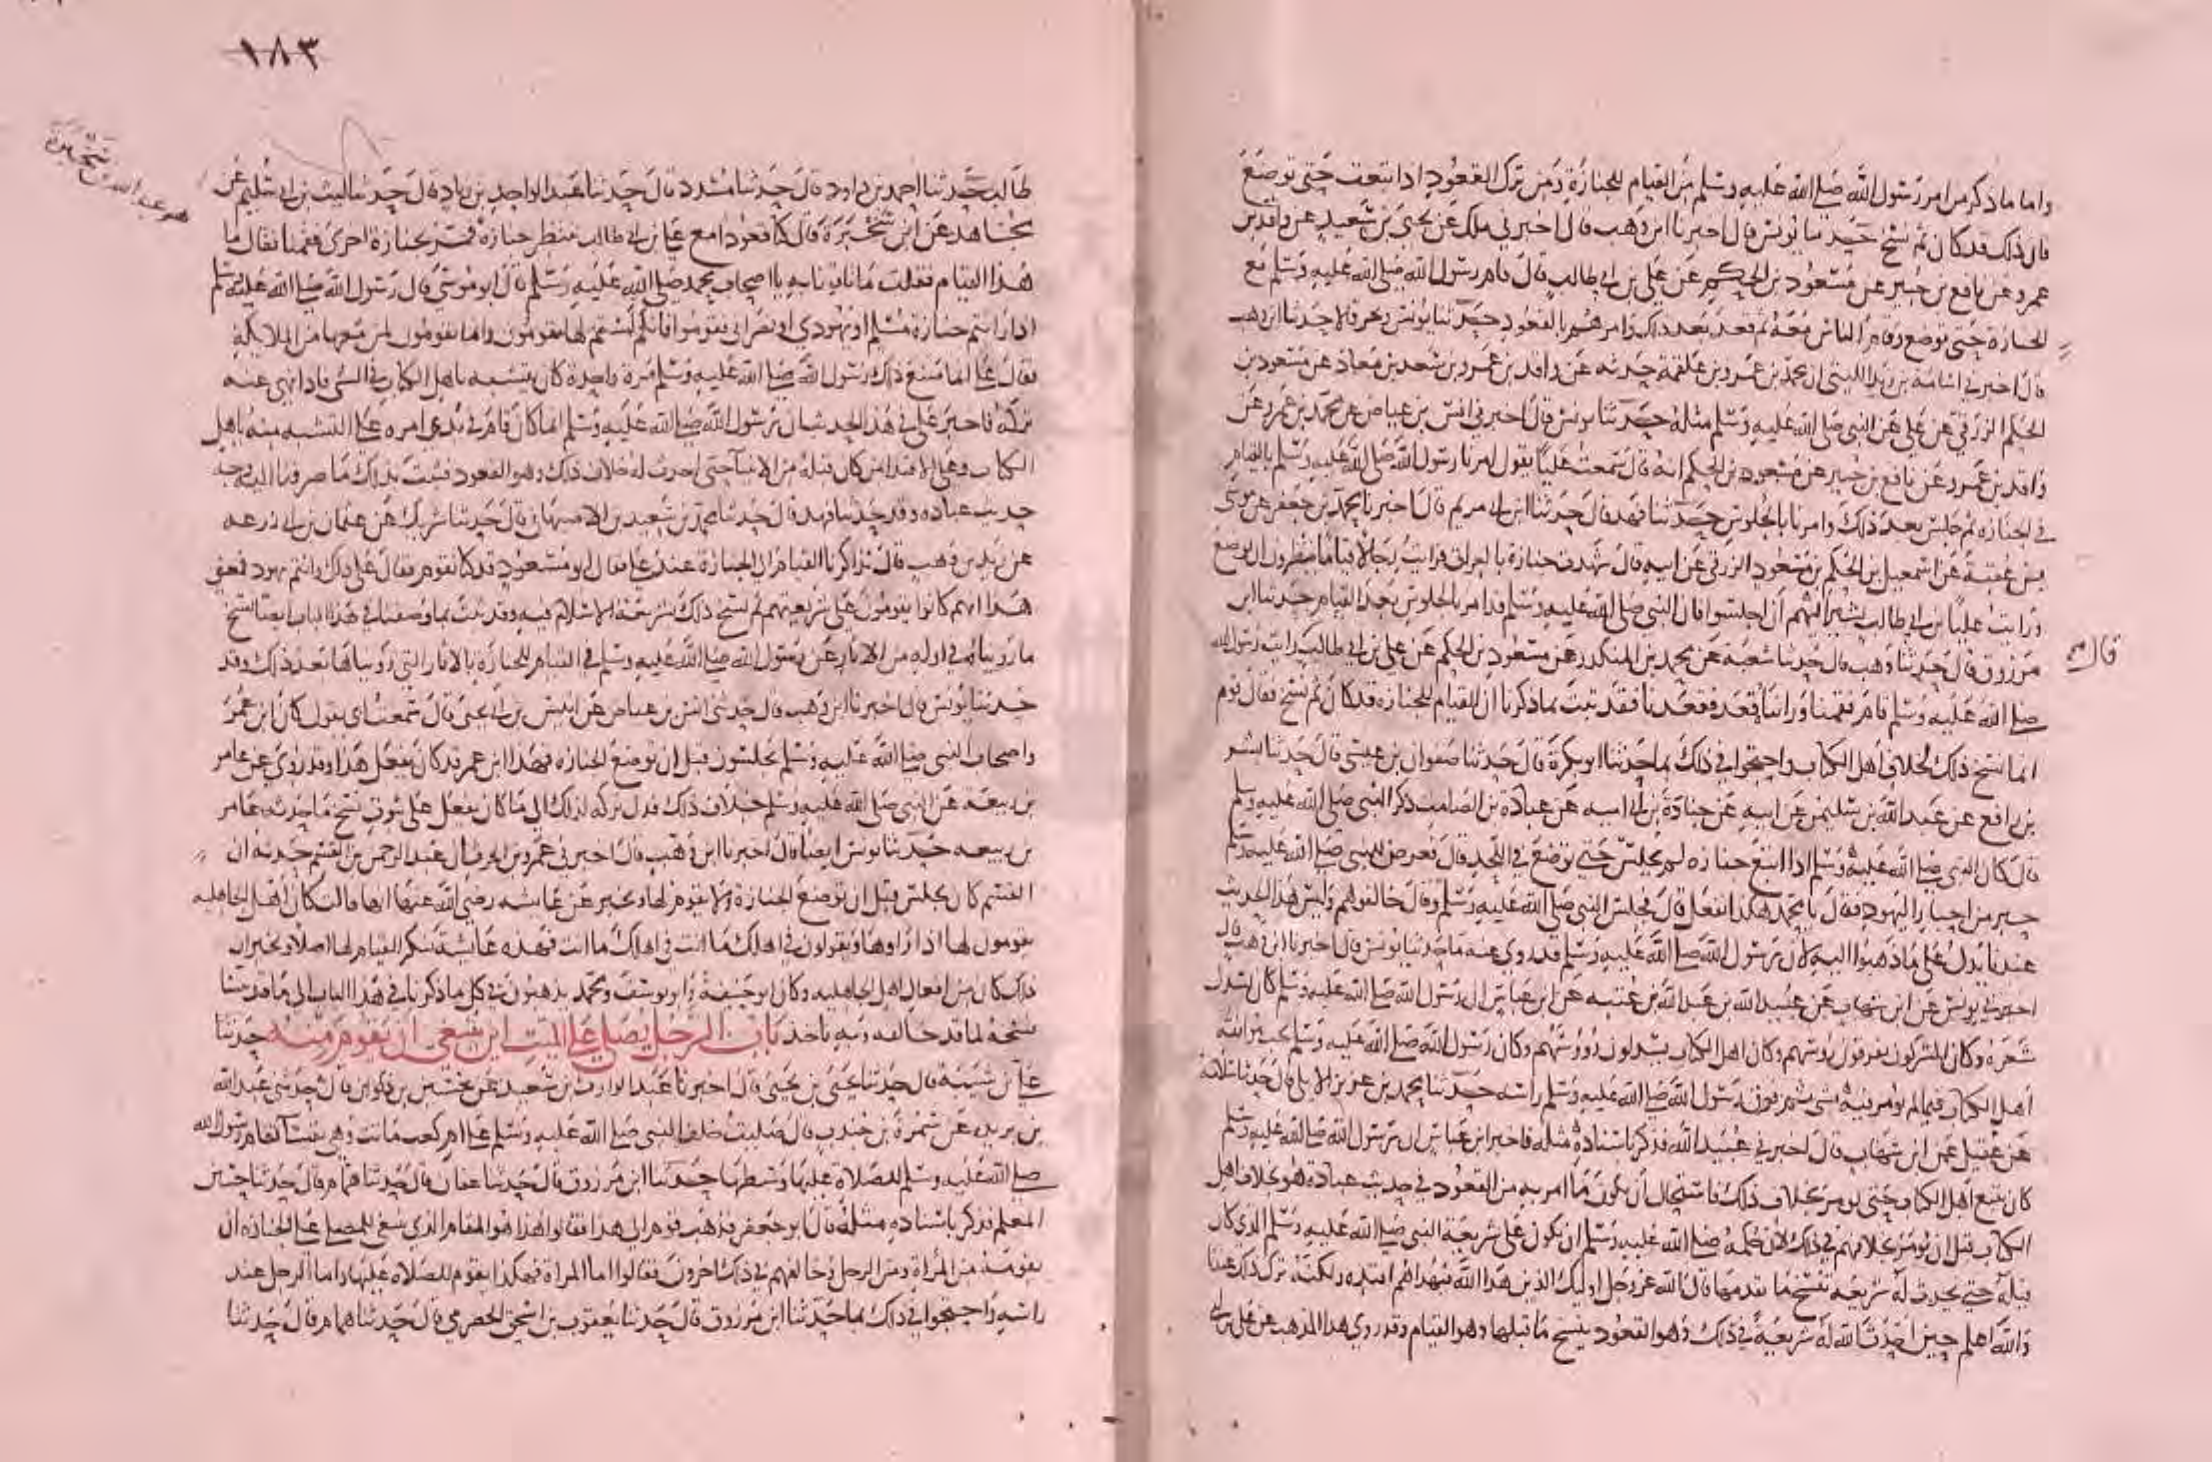 واما ما ذكر من امر رسول الله صلى الله عليه وسلم من القيام للجنازة ومن ترك القعود اذا اتبعت حتى توضع
فان ذلك قد كان ثم نسخ حدثنا يونس قال اخبرنا ابن وهب قال اخبرني ملك عن يحيى بن سعيد عن واقد بن
عمرو عن نافع بن جبير عن مسعود بن الحكم عن علي بن ابي طالب قال قام رسول الله صلى الله عليه وسلم مع
الجنازة حتى توضع وقام الناس معه ثم قعد بعد ذلك وامرهم بالقعود حدثنا يونس وبحر قالا حدثنا ابن وهب
قال اخبرني اسامة بن زيد الليثي ان محمد بن عمرو بن علقمة حدثه عن واقد بن عمرو بن سعد بن معاذ عن مسعود بن
الحكم الزرقي عن علي عن النبي صلى الله عليه وسلم مثله حدثنا يونس قال اخبرني انس بن عياض عن محمد بن عمرو عن
واقد بن عمرو عن نافع بن جبير عن مسعود بن الحكم انه قال سمعت عليا يقول امرنا رسول الله صلى الله عليه وسلم بالقيام
في الجنازة ثم جلس بعد ذلك وامرنا بالجلوس حدثنا فهد قال حدثنا ابن ابي مريم قال اخبرنا محمد بن جعفر عن موسى
بن عقبة عن اسمعيل بن الحكم بن مسعود الزرقي عن ابيه قال شهدت جنازة بالعراق فرايت رجالا قياما ينظرون ان توضع
ورايت علي بن ابي طالب يشير اليهم ان اجلسوا فان النبي صلى الله عليه وسلم قد امر بالجلوس بعد القيام حدثنا ابن
مرزوق قال حدثنا وهب قال حدثنا شعبة عن محمد بن المنكدر عن مسعود بن الحكم عن علي بن ابي طالب رايت رسول الله
قال
صلى الله عليه وسلم قام فقمنا وراينا قعد فقعدنا فقد ثبت بما ذكرنا ان القيام للجنازة قد كان ثم نسخ فقال قوم
انما نسخ ذلك لخلاف اهل الكتاب واحتجوا في ذلك بما حدثنا ابو بكرة قال حدثنا صفوان بن عيسى قال حدثنا بشر
بن رافع عن عبد الله بن سليمن عن ابيه عن جنادة بن ابي امية عن عبادة بن الصامت ذكر النبي صلى الله عليه وسلم
قال كان النبي صلى الله عليه وسلم اذا اتبع جنازة لم يجلس حتى توضع في اللحد قال فعرض للنبي صلى الله عليه وسلم
حبر من احبار اليهود فقال يا محمد هكذا نفعل قال فجلس النبي صلى الله عليه وسلم وقال خالفوهم وليس هذا الحديث
عندنا يدل على ما ذهبوا اليه لان رسول الله صلى الله عليه وسلم قد روي عنه ما حدثنا يونس قال اخبرنا ابن وهب قال
اخبرني يونس عن ابن شهاب عن عبيد الله بن عبد الله بن عتبة عن ابن عباس ان رسول الله صلى الله عليه وسلم كان يسدل
شعره وكان المشركون يفرقون رؤسهم وكان اهل الكتاب يسدلون رؤوسهم وكان رسول الله صلى الله عليه وسلم
اهل الكتاب فيما لم يؤمر فيه بشي ثم فرق رسول الله صلى الله عليه وسلم راسه حدثنا محمد بن عزيز الايلي قال حدثنا سلامة
عن عقيل عن ابن شهاب قال اخبرني عبيد الله فذكر باسناده مثله فاخبر ابن عباس ان رسول الله صلى الله عليه وسلم
كان يتبع اهل الكتاب حتى يؤمر بخلاف ذلك فاستحال ان يكون ما امر به من القعود في حديث عبادة هو بخلاف اهل
الكتاب قبل ان يؤمر بخلافهم في ذلك لان حكمه صلى الله عليه وسلم ان يكون على شريعة النبي صلى الله عليه وسلم الذي كان
قبله حتى يحدث له شريعة تنسخ ما تقدمها قال الله عز وجل اوليك الذين هدا الله فبهداهم اقتده ولكنه ترك ذلك عندنا
والله اعلم حين احدث الله له شريعة في ذلك وهو القعود ينسخ ما قبلها وهو القيام وقد روي هذا المذهب عن علي بن ابي
١٨٣
هو عبد الله بن سخبرة
طالب حدثنا احمد بن داود قال حدثنا مسدد قال حدثنا عبد الواحد بن زياد قال حدثنا ليث بن ابي سليم عن
مجاهد عن ابن سخبرة قال كنا قعودا مع علي بن ابي طالب ننتظر جنازة فمر بجنازة اخرى فقمنا فقال ما
هذا القيام فقلت ما تاتونا به يا اصحاب محمد صلى الله عليه وسلم قال ابو موسى قال رسول الله صلى الله عليه وسلم
اذا رايتم جنازة مسلم او يهودي او نصراني فقوموا فانكم لستم لها تقومون وانما تقومون لمن معها من الملايكة
فقال علي انما صنع ذلك رسول الله صلى الله عليه وسلم مرة واحدة كان يتشبه باهل الكتاب في الشي فاذا نهي عنه
تركه فاخبر علي في هذا الحديث ان رسول الله صلى الله عليه وسلم انما كان قام في بدي امره على التشبه منه باهل
الكتاب وعلى الاقتدا بمن كان قبله من الانبيا حتى احدث له خلاف ذلك وهو القعود فثبت بذلك ما صرفنا اليه وجه
حديث عبادة وقد حدثنا فهد قال حدثنا محمد بن سعيد بن الاصبهاني قال حدثنا شريك عن عثمان بن ابي زرعة
عن زيد بن وهب قال تذاكرنا القيام الى الجنازة عند علي فقال ابو مسعود قد كنا نقوم فقال علي ذلك وانتم يهود فمعنى
هذا انهم كانوا يقومون على شريعتهم ثم نسخ ذلك بشريعة الاسلام فيه وقد ثبت بما وصفنا في هذا الباب ايضا نسخ
ما روينا في اوله من الاثار عن رسول الله صلى الله عليه وسلم في القيام للجنازة بالاثار التي روينا بعد ذلك وقد
حدثنا يونس قال اخبرنا ابن وهب قال حدثني انس بن عياض عن انيس بن ابي يحيى قال سمعت ابي يقول كان ابن عمر
واصحاب النبي صلى الله عليه وسلم يجلسون قبل ان توضع الجنازة فهذا ابن عمر قد كان يفعل هذا وقد روي عن عامر
بن ربيعة عن النبي صلى الله عليه وسلم خلاف ذلك فدل تركه لذلك الى ما كان يفعل على ثبوت نسخ ما حدثه عامر
بن ربيعة حدثنا يونس ايضا قال اخبرنا ابن وهب قال اخبرني عمرو بن الحرث ان عبد الرحمن بن القسم حدثه ان
القسم كان يجلس قبل ان توضع الجنازة ولا يقوم لها ويخبر عن عايشة رضي الله عنها انها قالت كان اهل الجاهلية
يقومون لها اذا راوها ويقولون في اهلك ما انت في اهلك ما انت فهذه عايشة تنكر القيام لها اصلا وتخبر ان
ذلك كان من افعال اهل الجاهلية وكان ابو حنيفة وابو يوسف ومحمد يذهبون في كل ما ذكرنا في هذا الباب الى ما قد بينا
نسخه لما قد خالفه وبه ناخذ باب الرجل يصلي على الميت اين ينبغي ان يقوم منه حدثنا
علي بن شيبة قال حدثنا يحيى بن يحيى قال اخبرنا عبد الوارث بن سعيد عن حسين بن ذكوان قال حدثني عبد الله
بن بريدة عن سمرة بن جندب قال صليت خلف النبي صلى الله عليه وسلم على ام كعب ماتت وهي نفسا فقام رسول الله
صلى الله عليه وسلم للصلاة عليها وسطها حدثنا ابن مرزوق قال حدثنا عفان قال حدثنا همام قال حدثنا حسين
المعلم فذكر باسناده مثله قال ابو جعفر فذهب قوم الى هذا فقالوا هذا هو المقام الذي ينبغي للمصلي على الجنازة ان
يقومه من المراة ومن الرجل وخالفهم في ذلك اخرون فقالوا اما المراة فهكذا يقوم للصلاة عليها واما الرجل عند
راسه واحتجوا في ذلك بما حدثنا ابن مرزوق قال حدثنا يعقوب بن اسحق الحضرمي قال حدثنا همام قال حدثنا